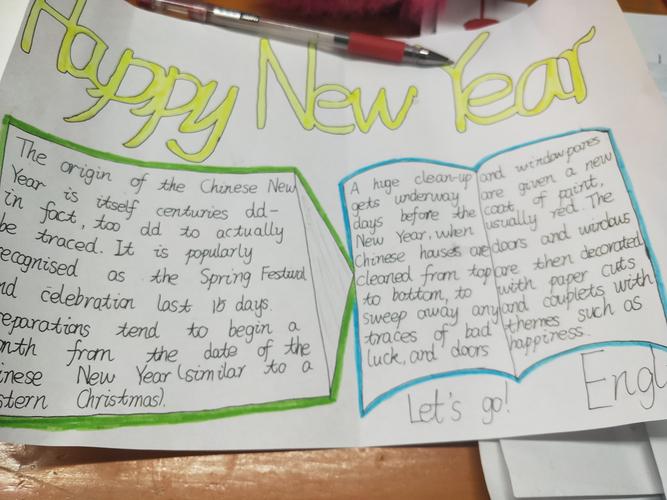 Happy New Year
The origin of the Chinese New
Year is itself centuries old-
in fact, too old to actually
be traced. It is popularly
recognised as the Spring Festival
nd celebration last 15 days.
eparations tend to begin a
nth from the date of the
inese New Year (similar to a
stern Christmas).
A huge clean-up
gets underway
days before the
New Year, when
Chinese houses are
cleaned from top
to bottom, to
sweep away any
traces of bad
luck, and doors
and windowpanes
are given a new
coat of paint,
usually red. The
doors and windows
are then decorated
with paper cuts
and couplets with
themes such as
happiness.
Let's go!
Engl